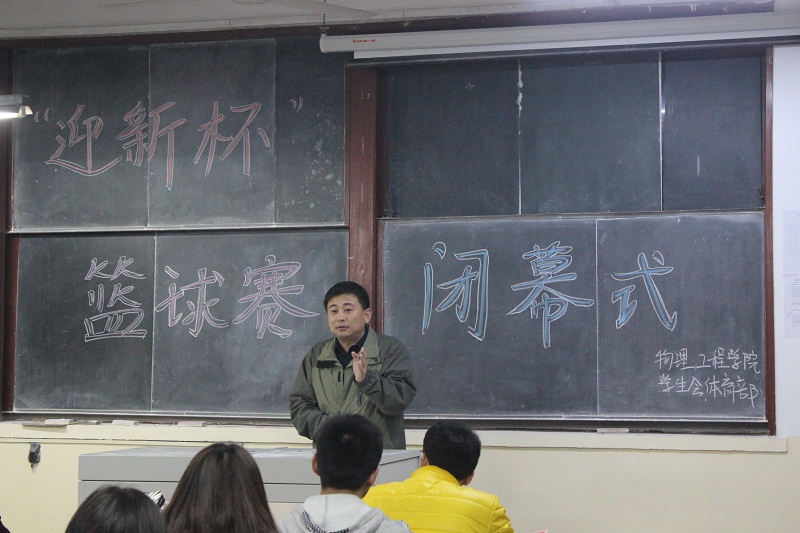 “迎新杯”
篮球赛 闭幕式
物理工程学院
学生会体育部